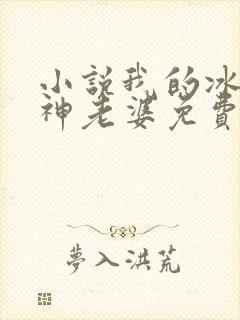 小說我的冰
神老婆免費
夢入洪荒